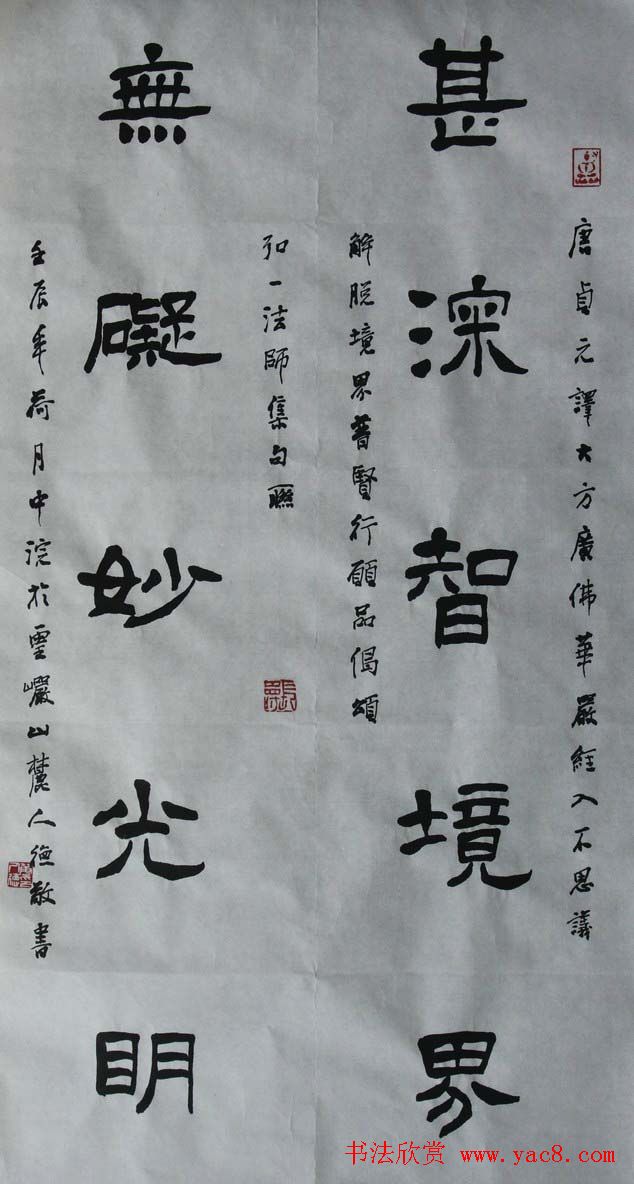 甚深智境界
唐貞元譯大方廣佛華嚴經入不思議
解脫境界普賢行願品偈頌
無礙妙光明
弘一法師集句聯
壬辰年荷月中浣於靈巖山麓人德敬書
书法欣赏 www.yac8.com